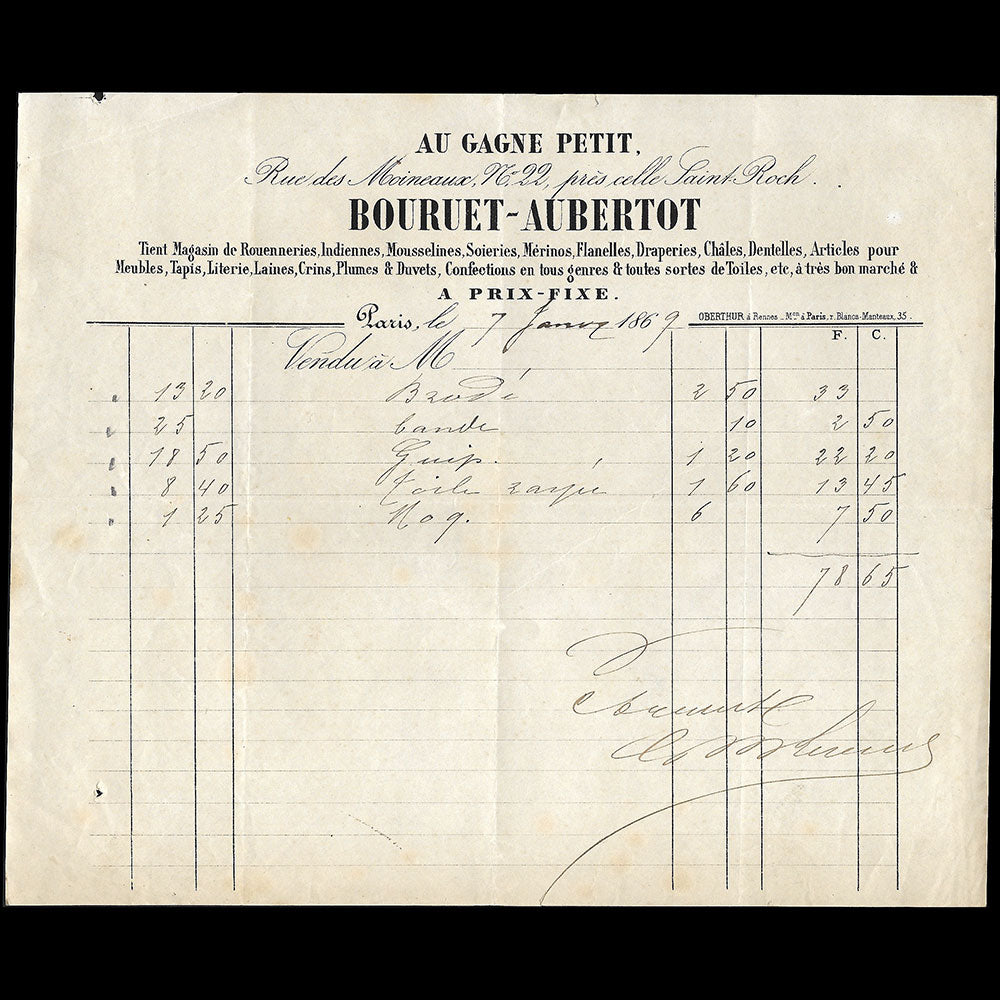 AU GAGNE PETIT,
Rue des Moineaux, No. 22, près celle Saint-Roch.
BOURUET-AUBERTOT
Tient Magasin de Rouenneries, Indiennes, Mousselines, Soieries, Mérinos, Flanelles, Draperies, Châles, Dentelles, Articles pour
Meubles, Tapis, Literie, Laines, Crins, Plumes & Duvets, Confections en tous genres & toutes sortes de Toiles, etc, à très bon marché &
A PRIX-FIXE.
Paris, le 7 Janv 1869 OBERTHUR à Rennes _ Mon à Paris, r. Blancs-Manteaux, 35.
Vendu à M F. C.
13 20 Brodé 2 50 33
25 bande 10 2 50
18 50 Guip. 1 20 22 20
8 40 toile rayée 1 60 13 45
1 25 Noq. 6 7 50
78 65